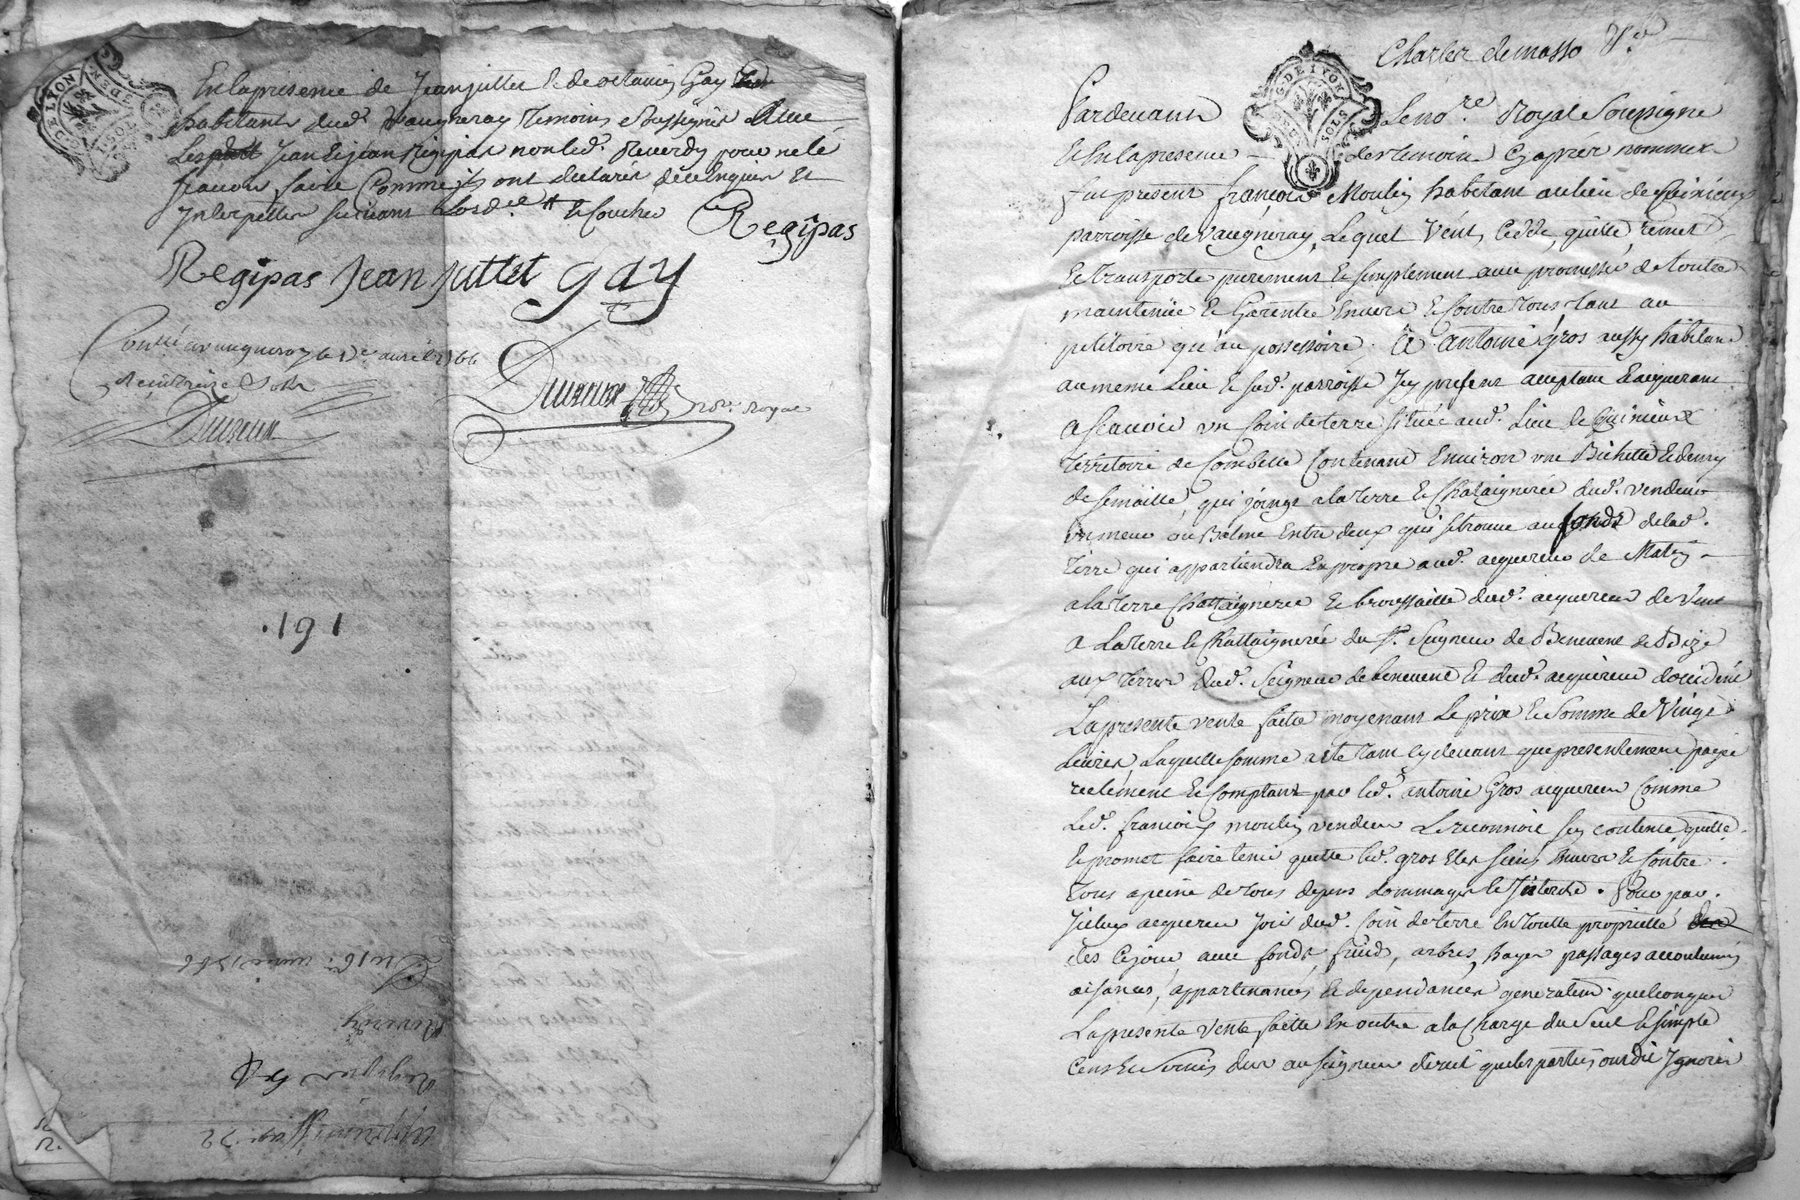 En la presence de Jean juillet & de octavien Gay
habitants dud. Vaugneray temoins soussignés avec
Les Jean & jean Régipas non led. Reverdy pour ne le
scavoir faire comme ils ont declarés de ce enquis et
Interpellés suivant L'ord.ce & souchés Regipas
Regipas Jean Juttet gay
Con.llé a vaugneray le avril 1766
Reçu treize sols
Duvenne Duvenne no.re royal
.191
G. DE LYON
SOLS
Charles demasso
Pardevant Le no.re Royal Soussigné
& En la presence des temoins Cy aprés nommés
fut present françois Moulin habitant au lieu de Quinieux
parroisse de Vaugneray, Lequel vent, cedde, quitte, remet
& transporte purement & simplement avec promesse de toutte
maintenüe & Garentie Envers & Contre tous, tant au
petitoire qu'au possessoire. A antoine gros aussy habitant
au meme Lieu & sud. parroisse Icy present acceptant & acquerant
a scavoir un Coin de terre situé aud. Lieu de Quinieux
territoire de Combelle Contenant Environ une Bichette & demy
de semaille, qui joingt a la terre & Chataignerée dud. vendeur
un meur ou Balme Entre deux qui se trouve au fonds de lad.
terre qui appartiendra En propre aud. acquereur de Matin
a la terre Chattaignerée & broussaille dud. acquereur de Vent
a La terre & Chattaignerée du Sr. Seigneur de Benevent de Bize
aux terres dud. Seigneur de benevent & dud. acquereur d'occident
La presente vente faitte moyenant Le prix & Somme de Vingt
Livres Laquelle somme a été tant cy devant que presentement payée
reelement & Comptant par led. antoine Gros acquereur Comme
Led. francois moulin vendeur Le reconnoit s'en contente, quitte
& promet faire tenir quitte led. gros & les siens Envers & Contre
Tous a peine de tous depens dommages & Interets. Pour par
Icelux acquereur Joüir dud. Coin de terre En toutte proprieté
des Ce jour avec fonds, fruid, arbres, hayes passages accoutumés
aisances, appartenances & dependances generalem.t quelconques
La presente vente faitte En outre a la Charge du Seul & simple
Cens & Servis dus au seigneur direct que les parties ont dit Ignorer